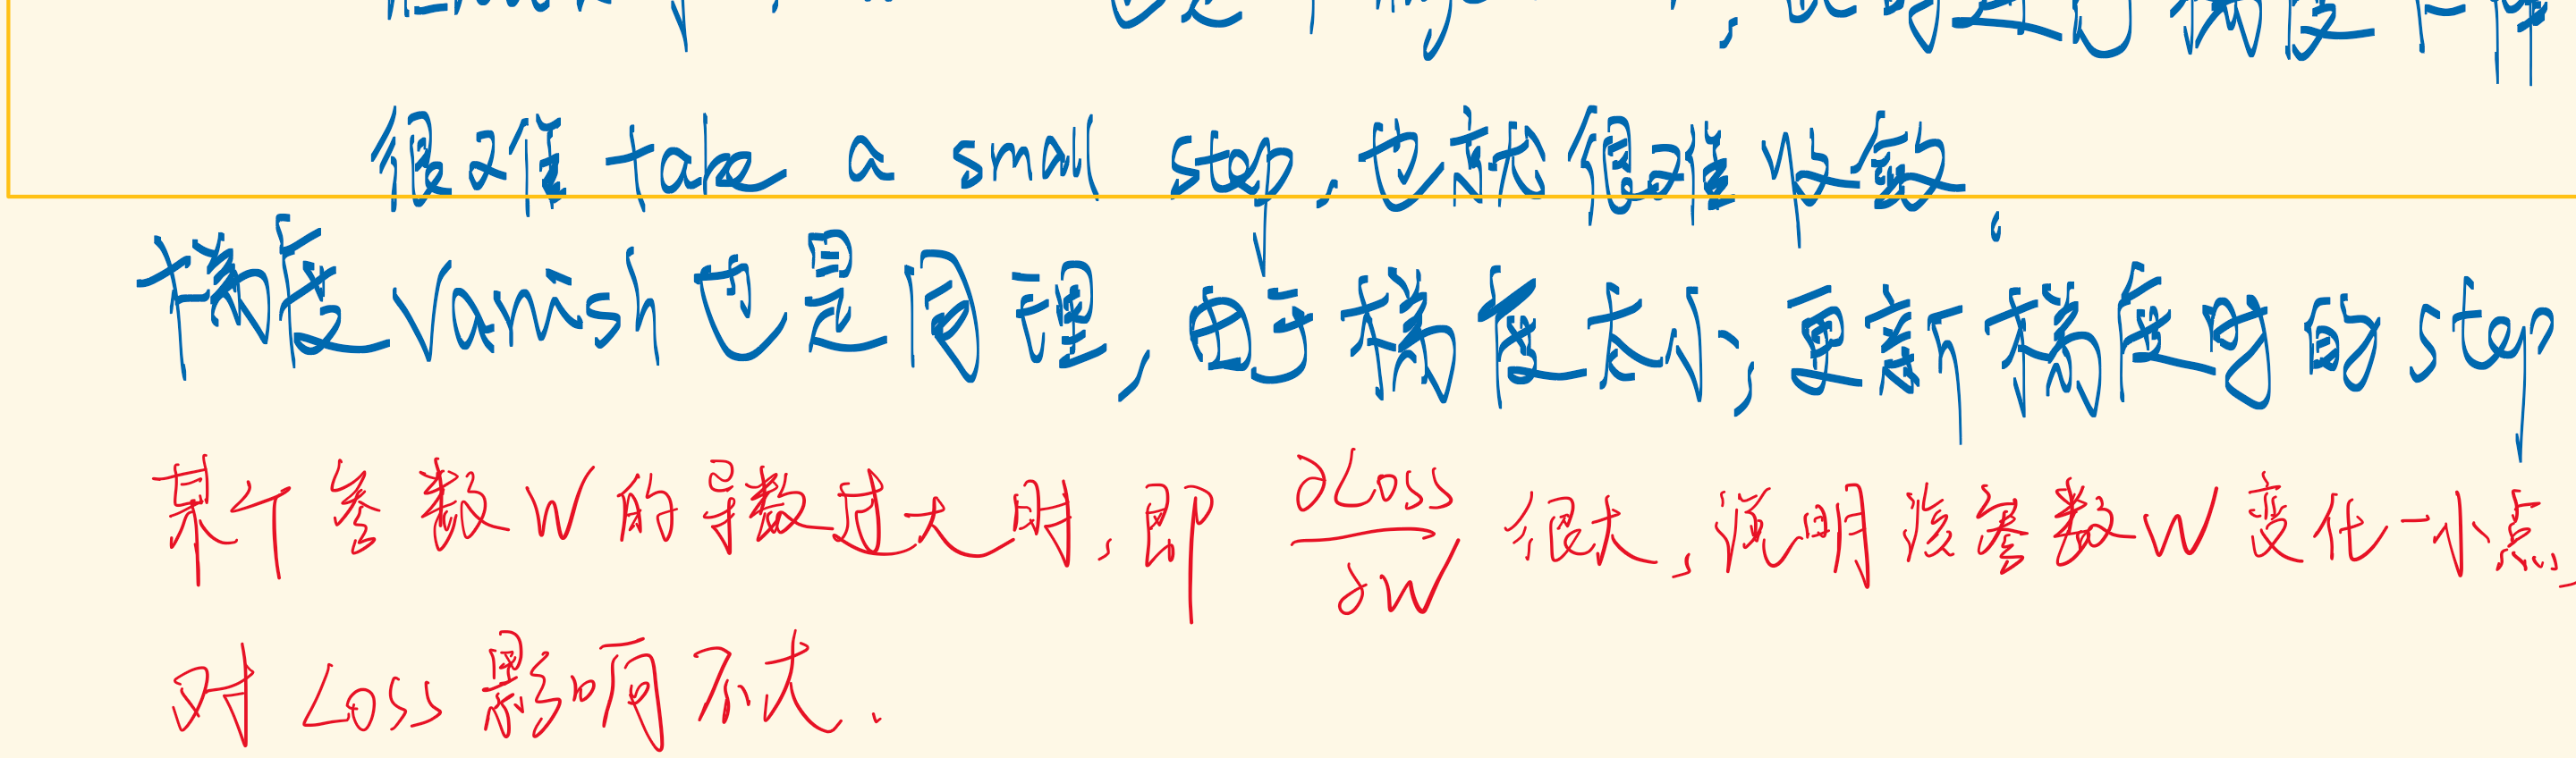 很难 take a small step, 也就很难收敛。
梯度 vanish 也是同理, 由于梯度太小, 更新梯度时的 step
某个参数 W 的导数过大时, 即 ∂Loss/∂W 很大, 说明该参数 W 变化一小点,
对 Loss 影响不大.